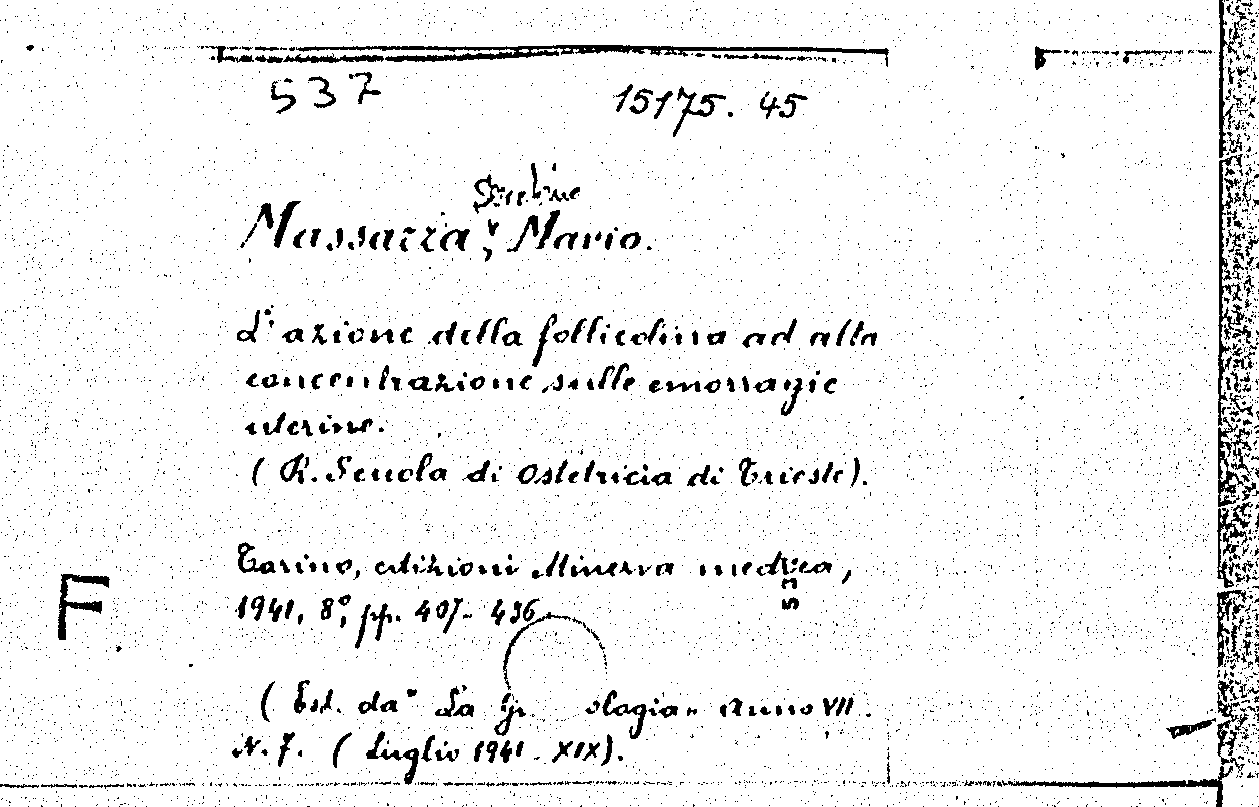 537 15175. 45
Massazza, Mario.
L'azione della follicolina ad alta
concentrazione sulle emorragie
uterine.
( R. Scuola di Ostetricia di Trieste).
Torino, edizioni Minerva medica,
1941, 8°, pp. 407- 436
537
F
( Est. da " La ologia" Anno VII.
N. 7. ( Luglio 1941 - XIX).